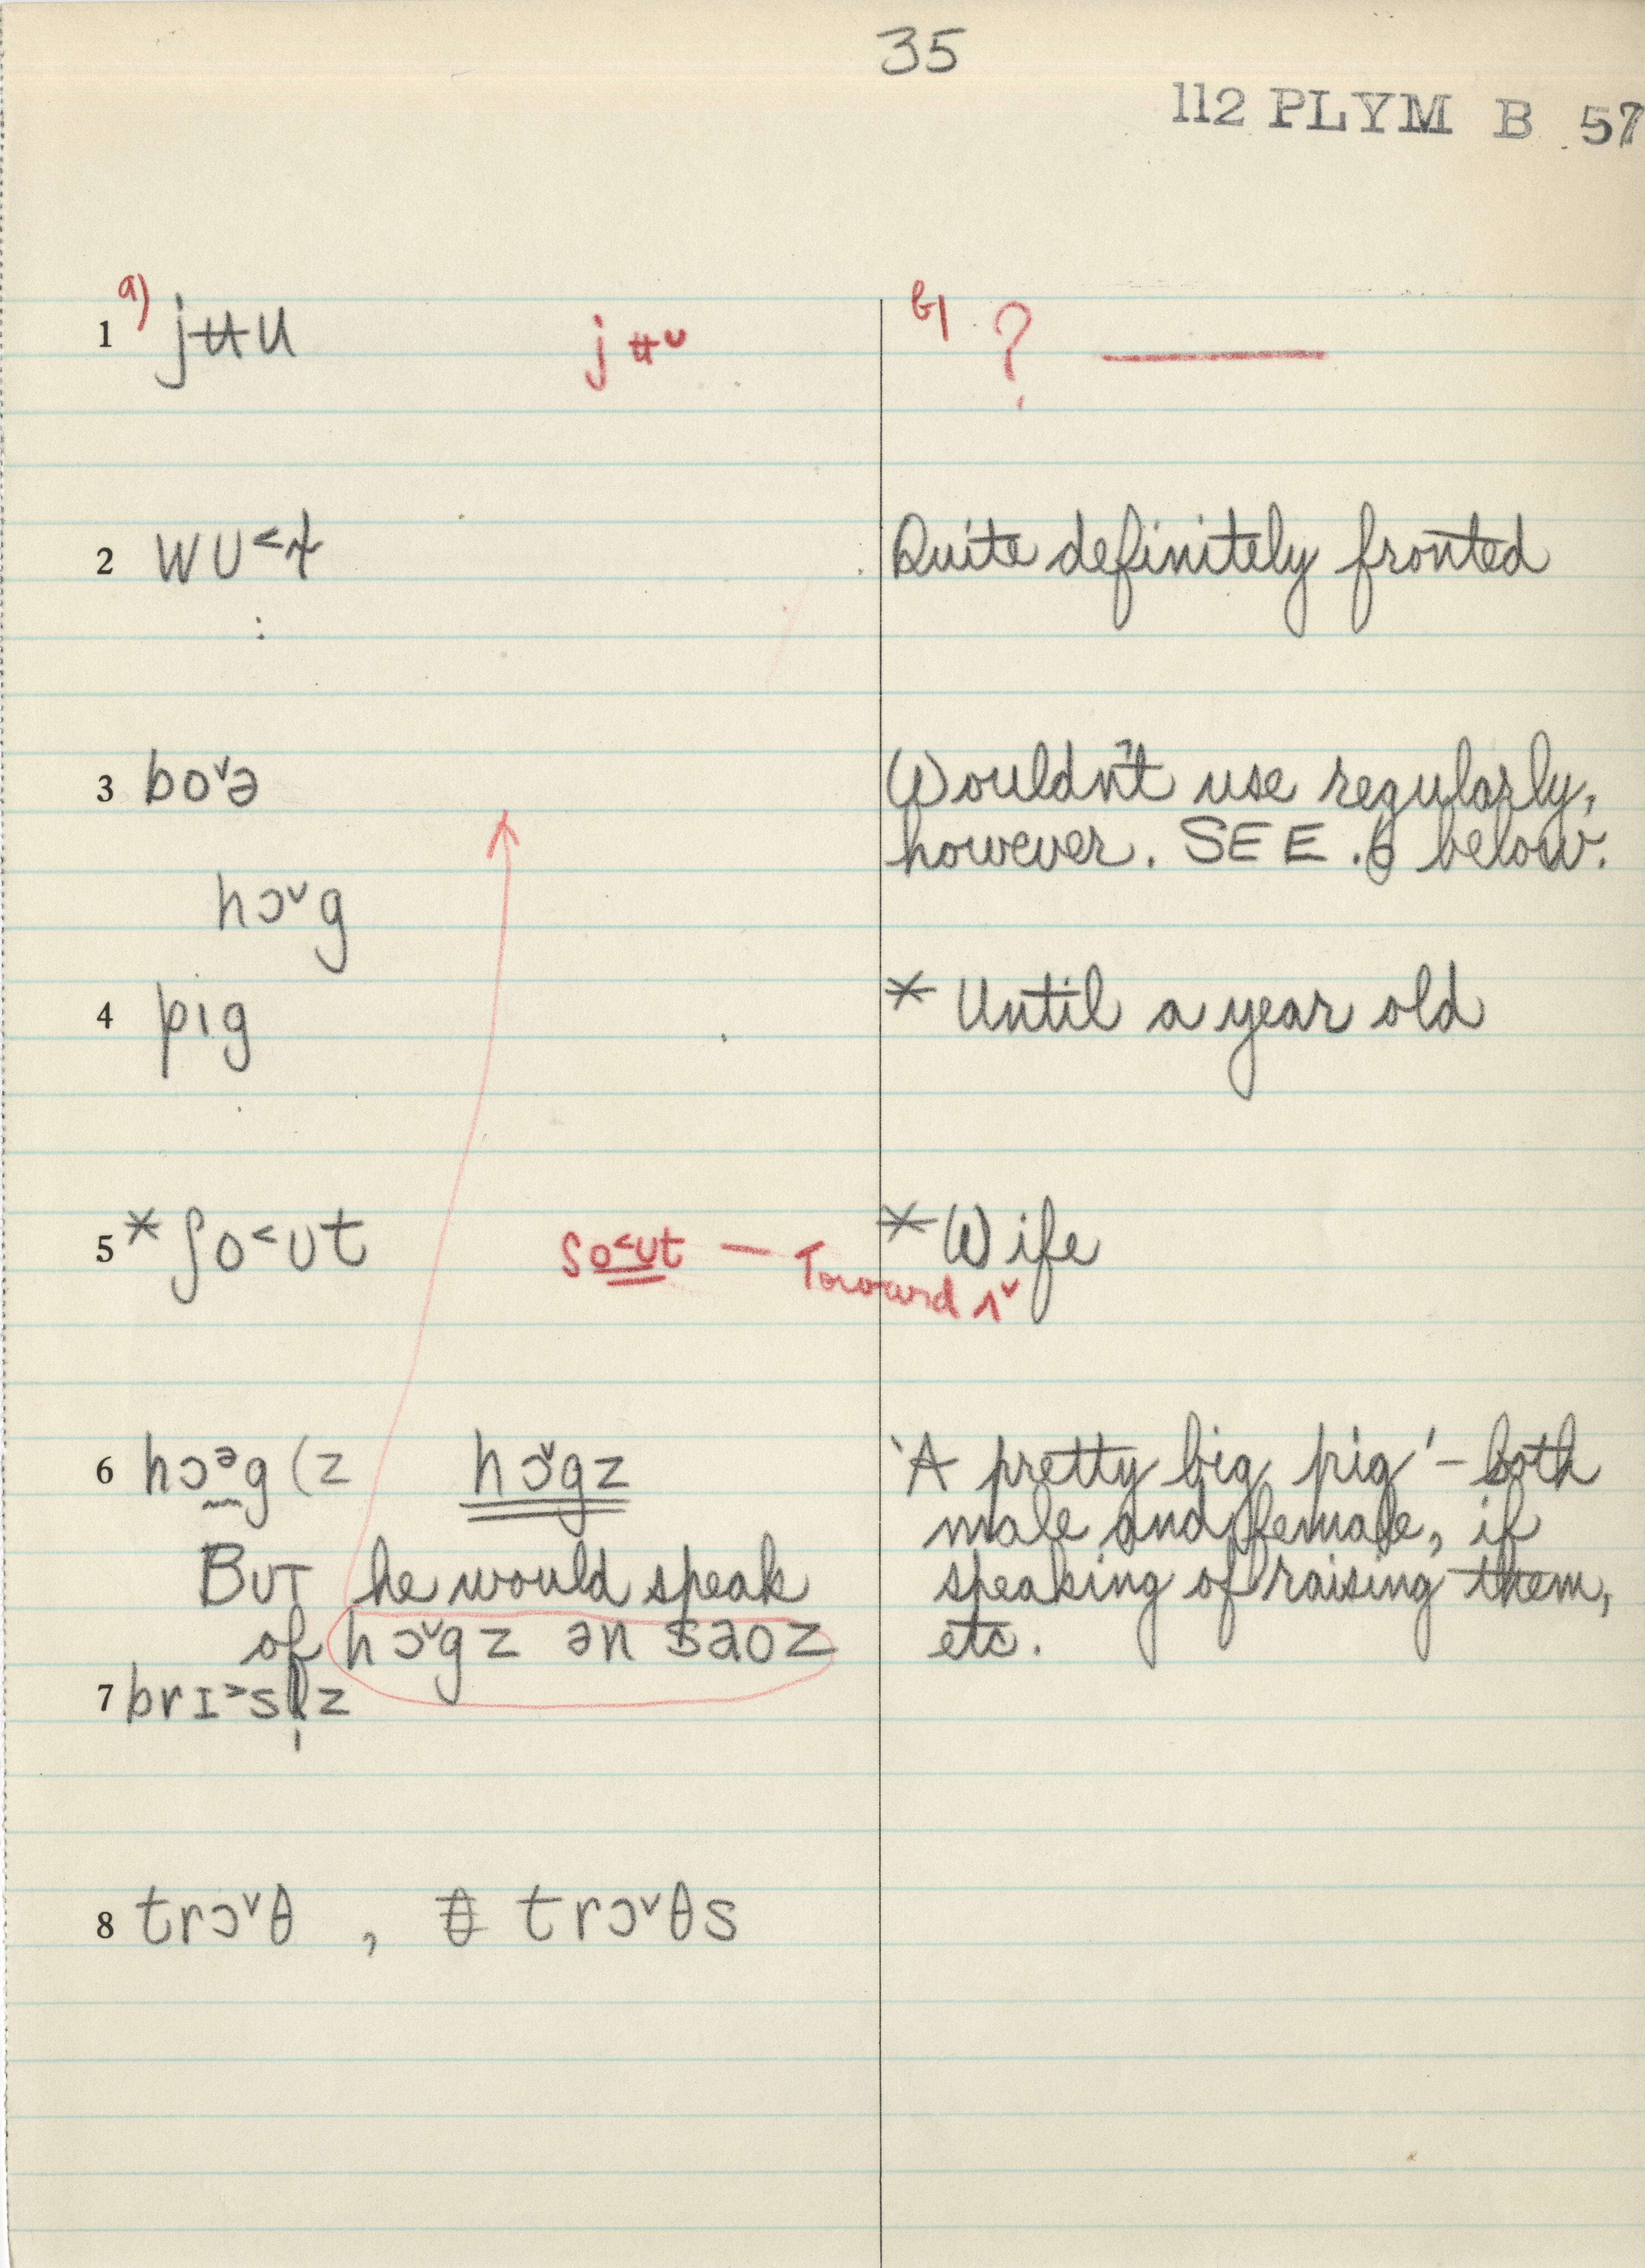 35
112 PLYM B 57
1 a) jʉu jʉᵕ b) ? ———
2 wu˂ɫ Quite definitely fronted
3 bo˅ə Wouldn't use regularly,
however. SEE .6 below.
hɔ˅g
4 pɪg * Until a year old
5 * ʃo˂ʊt ʃo˂ʊt — Toward ʌ˅ * Wife
6 hɔᵊg (z hɔ˅gz 'A pretty big pig' – both
male and female, if
BUT he would speak speaking of raising them,
of hɔ˅gz ən saʊz etc.
7 brɪ˃sl̩z
8 trɔ˅θ , trɔ˅θs